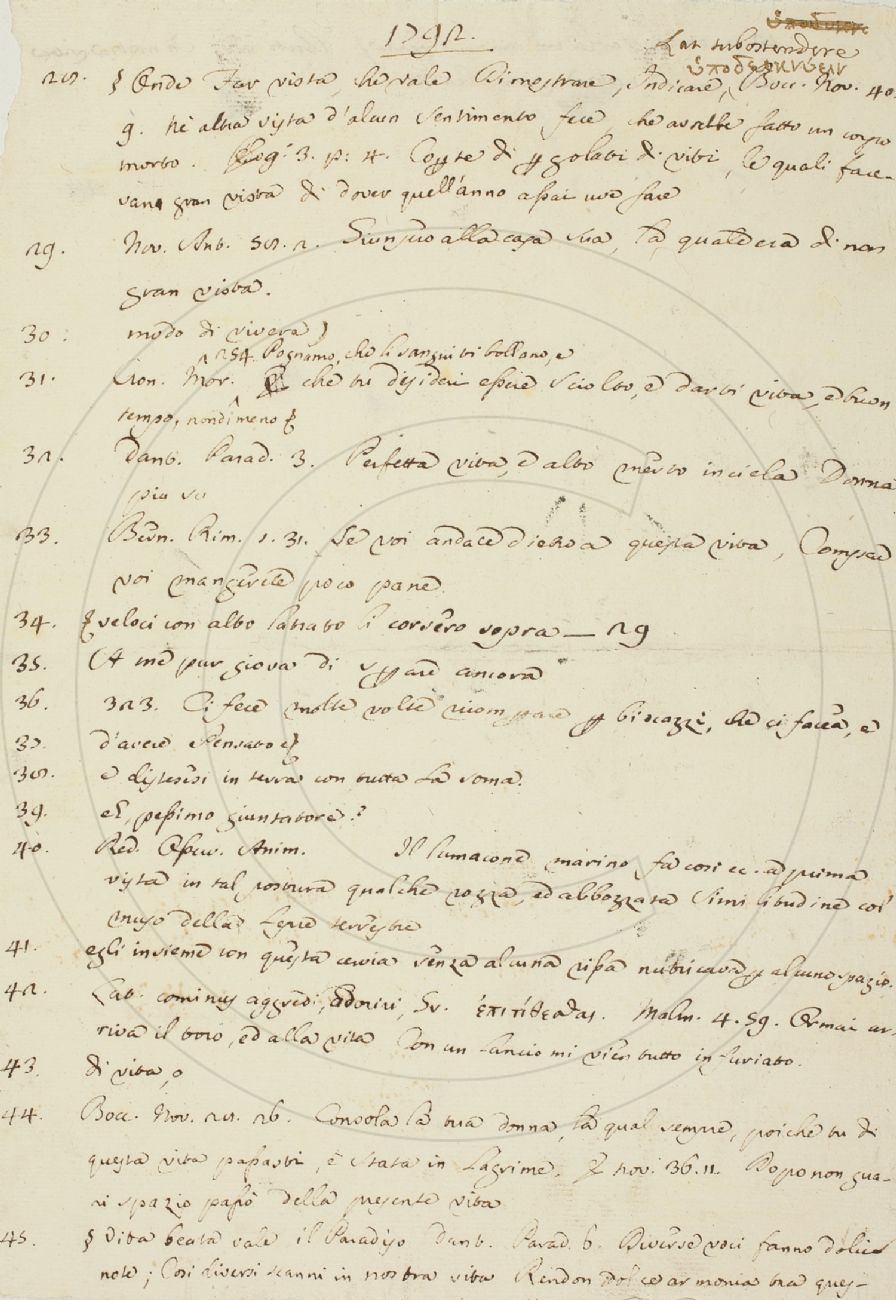 1792.
Lat. subostendere
ὑποδεικνύειν
28. § Onde Far vista, che vale Dimostrare, Indicare, Bocc. Nov. 40.
9. nè altra vista d'alcun sentimento fece che avrebbe fatto un corpo
morto. g. 3. p: 4. Coperte di pergolati di viti, le quali face-
vano gran vista di dover quell'anno assai uve fare
29. Nov. Ant. 2. Giunse alla casa sua, la quale era di non
gran vista.
30. modo di vivere)
254. Pognamo, che li sangui ti bollano, e
31. Mor. che tu desideri essere sciolto, e darti vita, e buon
tempo, nondimeno
32. Dant. Parad. 3. Perfetta vita, e alto merto inciela Donna
piu su
33. Bern. Rim. 1. 31. Se voi andate dietro a questa vita, Compare
voi mangerete poco pane
34. veloci con alto latrato li corsero sopra — 29
35. A me pur giova di sperare ancora
36. 323. Ci fece molte volte per biscazze, che ci facea, e
37. d'avere pensato
38. e distesesi in terra con tutta la soma.
39. el, pessimo giuntatore.
40. Red. Osserv. Anim. Il lumacone marino fa cosi ec. a prima
vista in tal postura qualche rozza, ed abbozzata similitudine col
muso della Lepre terrestre
41. egli insieme con questa cervia senza alcuna rissa nutricava per alcuno spazio.
42. Lat. cominus aggredi, adoriri, Gr. ἐπιτίθεσθαι. Malm. 4. 59. Ormai ar-
riva il toro, ed alla vita Con un lancio mi vien tutto infuriato.
43. di vita, o
44. Bocc. Nov. 26. Consola la tua donna, la qual sempre, poiche tu di
questa vita passasti, è stata in lagrime. nov. 36. 11. Dopo non gua-
ri spazio passò della presente vita
45. § Vita beata vale il Paradiso Dant. Parad. 6. Diverse voci fanno dolci
note; Cosi diversi scanni in nostra vita Rendon dolce armonia tra ques-